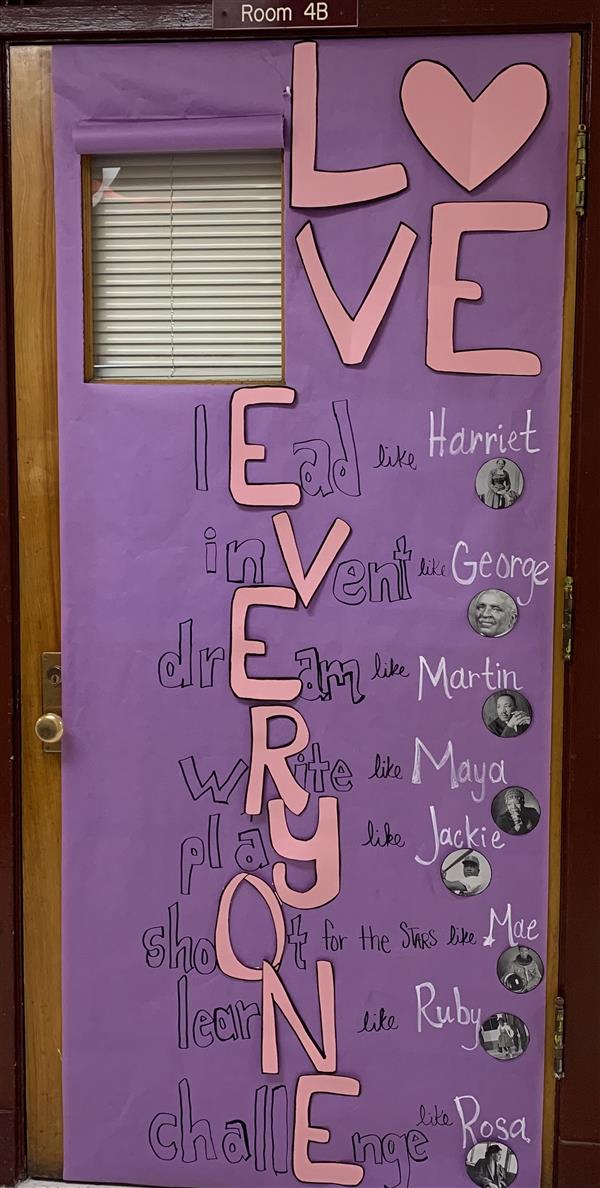 Room 4B
L♥
VE
lEad like Harriet
inVent like George
drEam like Martin
wRite like Maya
plaY like Jackie
shoOt for the STARS like Mae
learN like Ruby
challEnge like Rosa